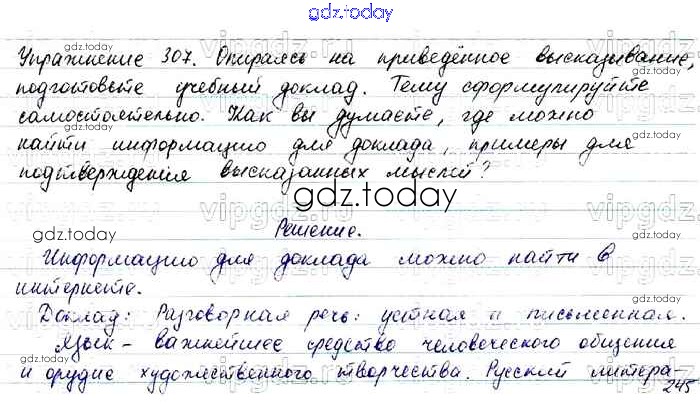 gdz.today
Упражнение 307. Опираясь на приведённое высказывание,
gdz.today gdz.today
подготовьте учебный доклад. Тему сформулируйте
самостоятельно. Как вы думаете, где можно
найти информацию для доклада, примеры для
подтверждения высказанных мыслей?
gdz.today
Решение.
gdz.today gdz.today
Информацию для доклада можно найти в
интернете.
Доклад: Разговорная речь: устная и письменная.
Язык - важнейшее средство человеческого общения
и орудие художественного творчества. Русский литера-
245